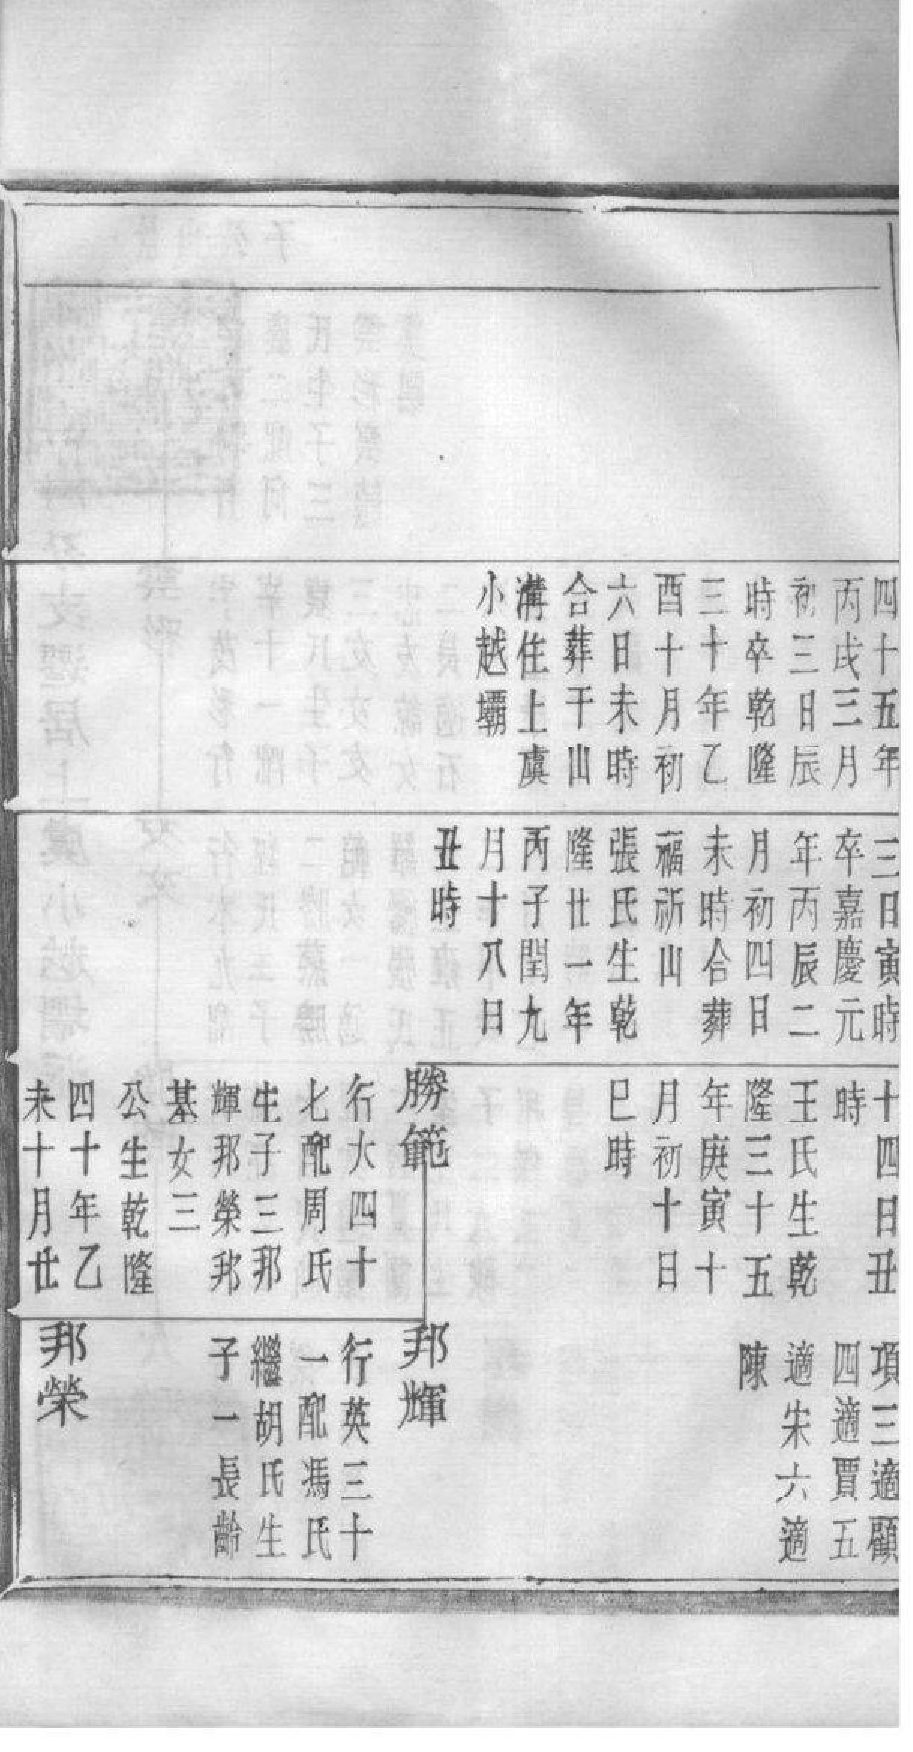 四十五年
丙戌三月
初三日辰
時卒乾隆
三十年乙
酉十月初
六日未時
合葬干山
溝住上虞
小越壩
三日寅時
卒嘉慶元
年丙辰二
月初四日
未時合葬
福祈山
張氏生乾
隆廿一年
丙子閏九
月十八日
丑時
十四日丑
時
王氏生乾
隆三十五
年庚寅十
月初十日
巳時
勝範
行大四十
七配周氏
生子三邦
輝邦榮邦
基女三
公生乾隆
四十年乙
未十月廿
項三適顧
四適賈五
適朱六適
陳
邦輝
行英三十
一配馮氏
繼胡氏生
子一長齡
邦榮